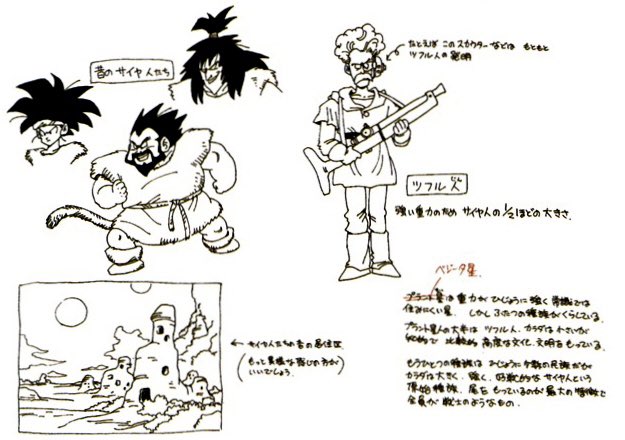 昔のサイヤ人たち
たとえば このスカウターなどは もともと
ツフル人の発明
ツフル人
じん
強い重力のため サイヤ人の1/2ほどの大きさ.
←サイヤ人たちの昔の居住区
(もっと異様な感じの方が
いいでしょう.)
ベジータ星.
プラント星は重力が ひじょうに 強く 常識では
住みにくい星. しかし ふたつの種族がくらしている.
プラント星人の大半は ツフル人. カラダは 小さいが
で 比較的 高度な文化、文明をもっている.
もうひとつの種族は ひじょうに 少数の民族だが
カラダは大きく 強く、好戦的な サイヤ人という
原始種族. 尾をもっているのが 最大の特徴で
全員が 戦士のようなもの.